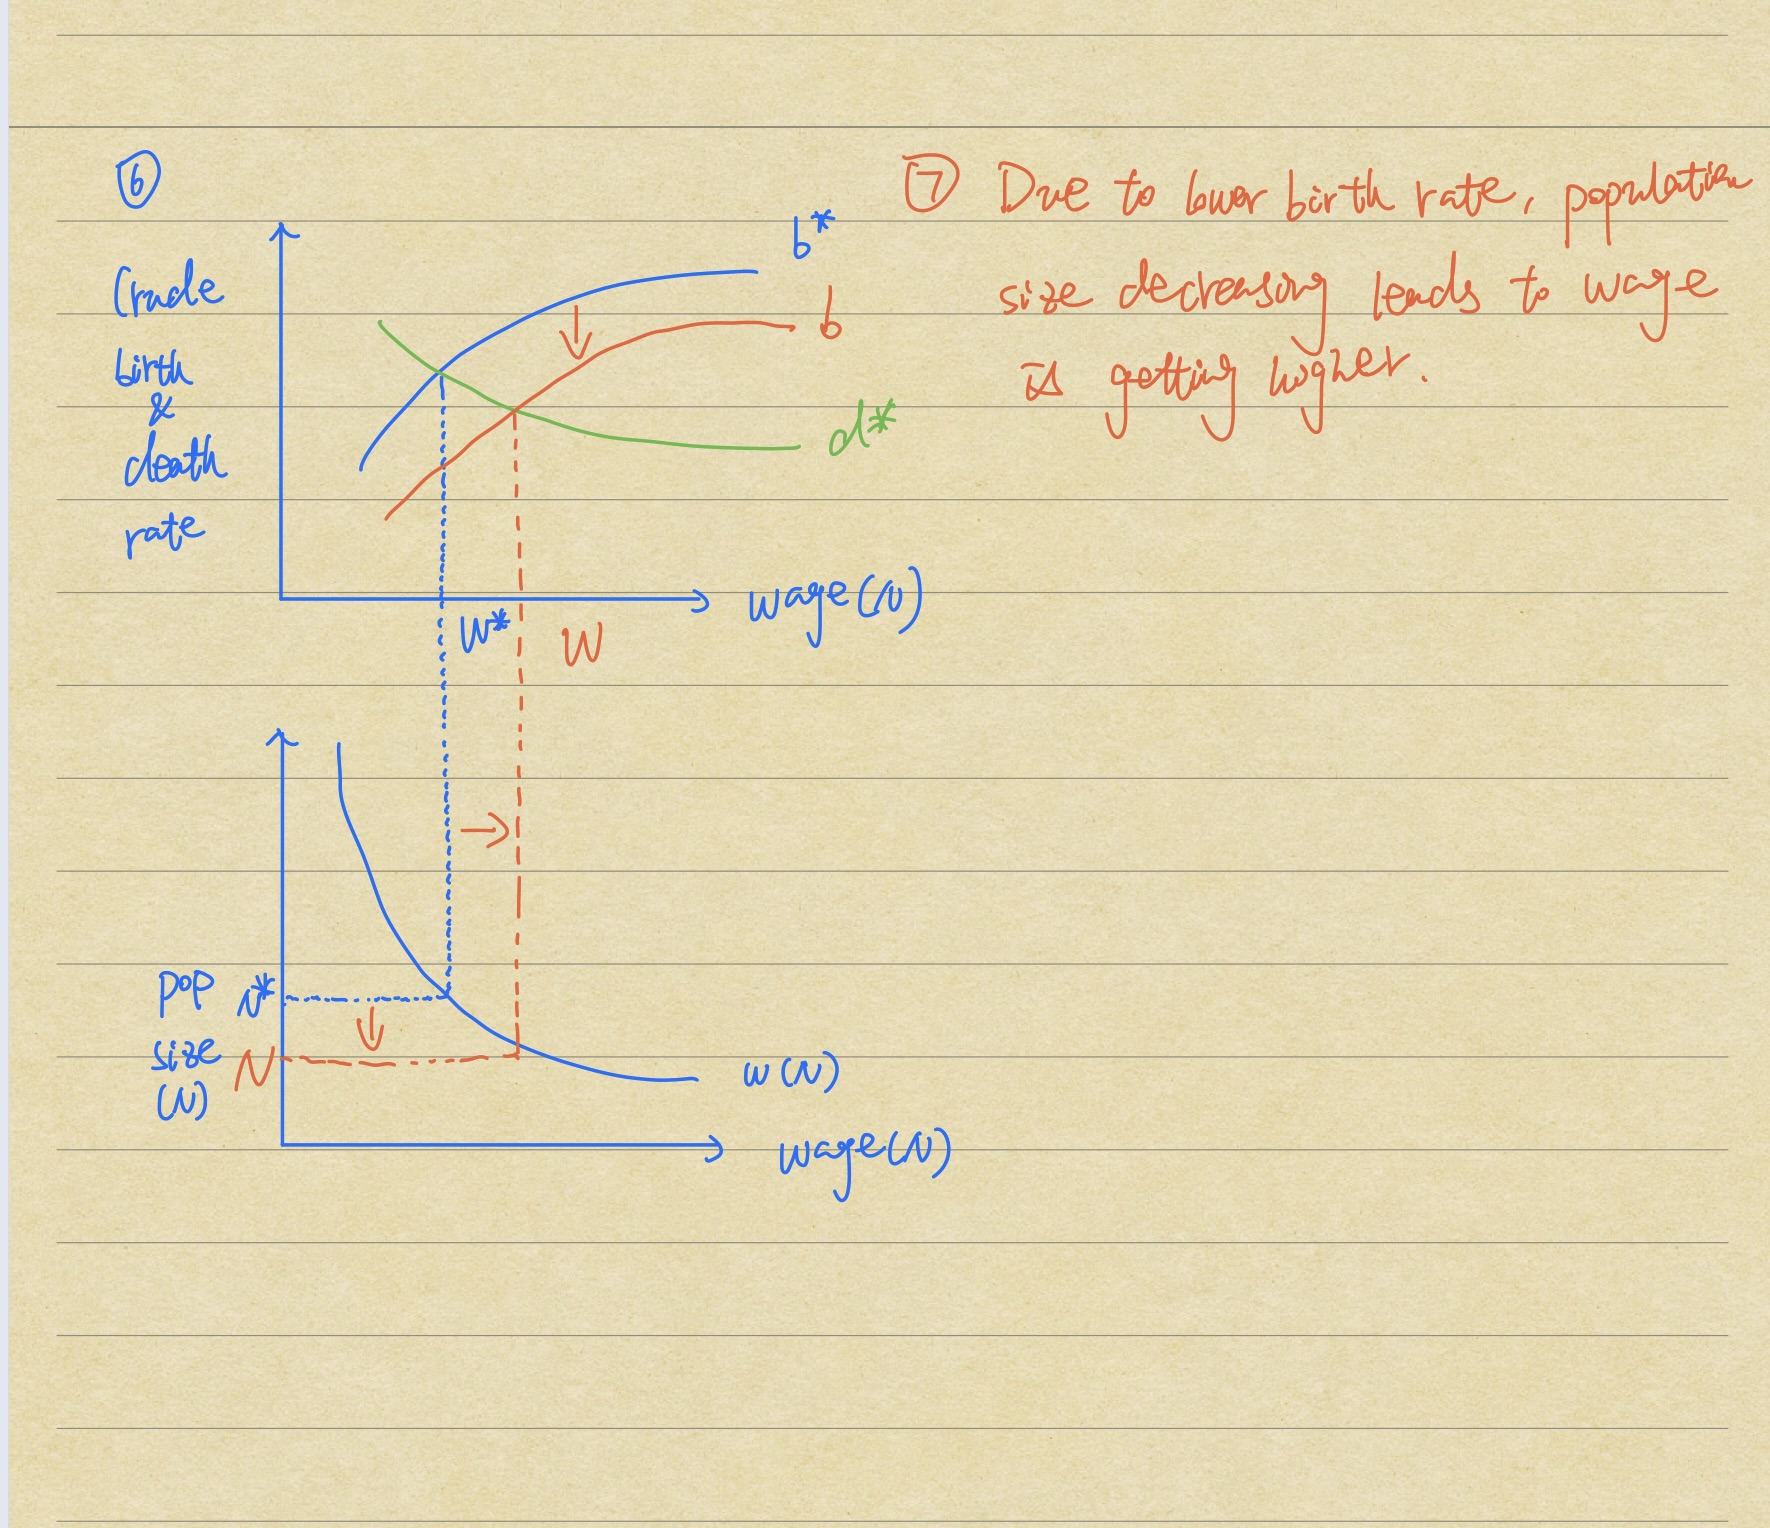 ⑥
b*
Crude
birth
&
death
rate
b
d*
wage(N)
W*
W
pop
size
(N)
N*
N
w(N)
wage(N)
⑦ Due to lower birth rate, population
size decreasing leads to wage
is getting higher.